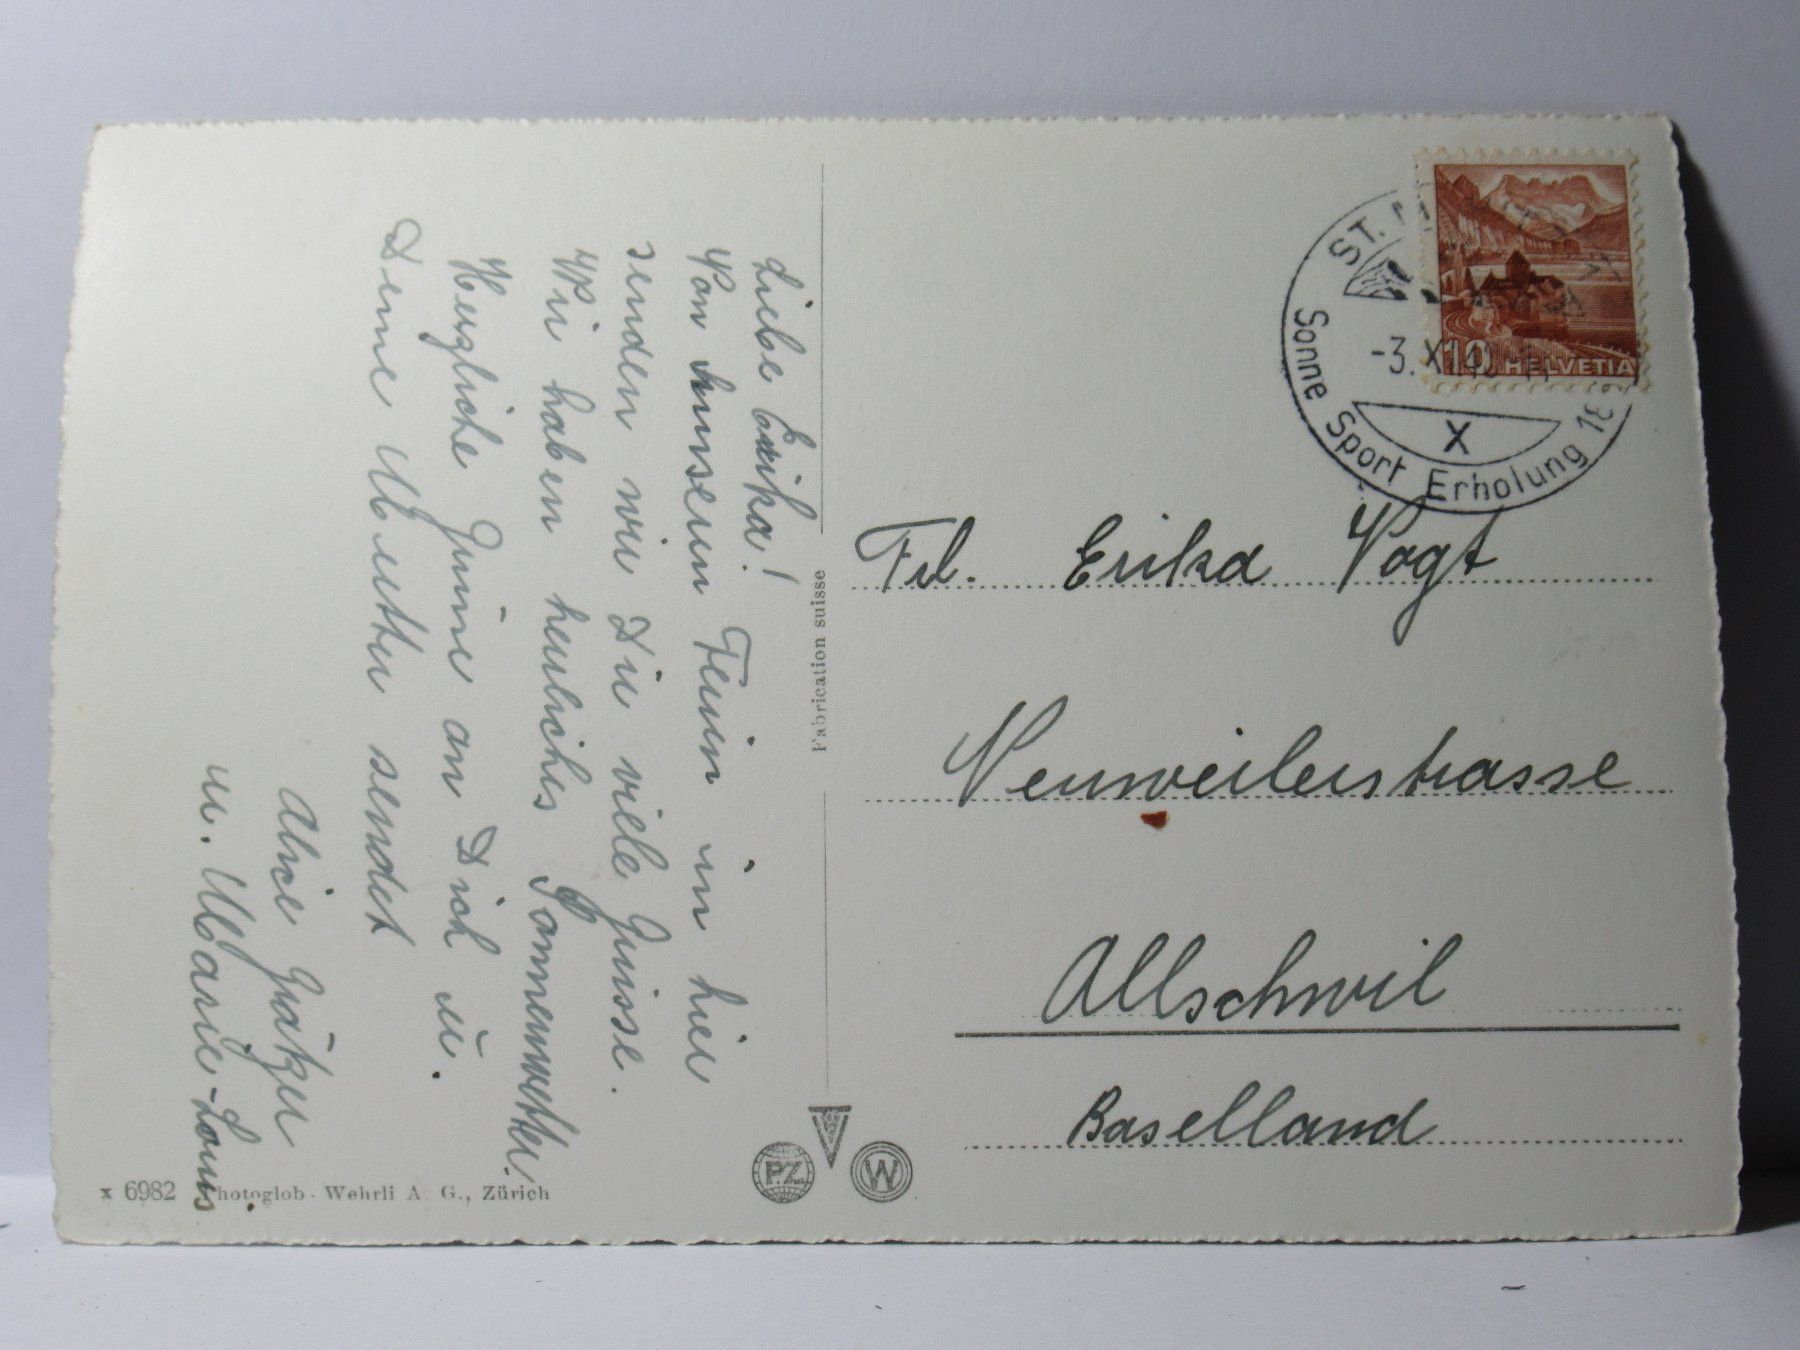 Liebe Erika!
Von unseren Ferien in hier
senden wir Dir viele Grüsse.
Wir haben herrliches Sonnenwetter.
Herzliche Grüsse an Dich u.
Deine Mutter sendet
Alice Grätzer
u. Marie-Louis.
Fabrication suisse
x 6982 Photoglob-Wehrli A. G., Zürich
P.Z.
W
ST.
-3.X
X
Sonne Sport Erholung 18
10 HELVETIA
Frl. Erika Vogt
Neuweilerstrasse
Allschwil
Baselland